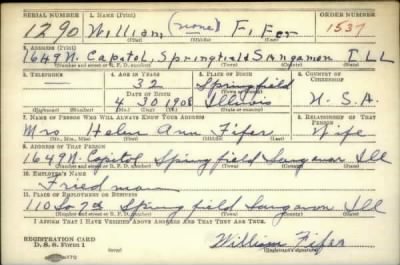 SERIAL NUMBER 1. NAME (Print) ORDER NUMBER
1290 William (none) Fifer 1537
(First) (Middle) (Last)
2. ADDRESS (Print)
1649 N. Capitol, Springfield Sangamon ILL
(Number and street or R. F. D. number) (Town) (County) (State)
3. TELEPHONE 4. AGE IN YEARS 5. PLACE OF BIRTH 6. COUNTRY OF CITIZENSHIP
32 Springfield
DATE OF BIRTH (Town or county)
4 30 1908 Illinois U. S. A.
(Exchange) (Number) (Mo.) (Day) (Yr.) (State or country)
7. NAME OF PERSON WHO WILL ALWAYS KNOW YOUR ADDRESS 8. RELATIONSHIP OF THAT PERSON
Mrs Helen Ann Fifer Wife
(Mr., Mrs., Miss) (First) (Middle) (Last)
9. ADDRESS OF THAT PERSON
1649 N. Capitol Springfield Sangamon Ill
(Number and street or R. F. D. number) (Town) (County) (State)
10. EMPLOYER'S NAME
Friedman
11. PLACE OF EMPLOYMENT OR BUSINESS
110 So 7th Springfield Sangamon Ill
(Number and street or R. F. D. number) (Town) (County) (State)
I AFFIRM THAT I HAVE VERIFIED ABOVE ANSWERS AND THAT THEY ARE TRUE.
REGISTRATION CARD
D. S. S. Form 1 William Fifer
(Registrant's signature)